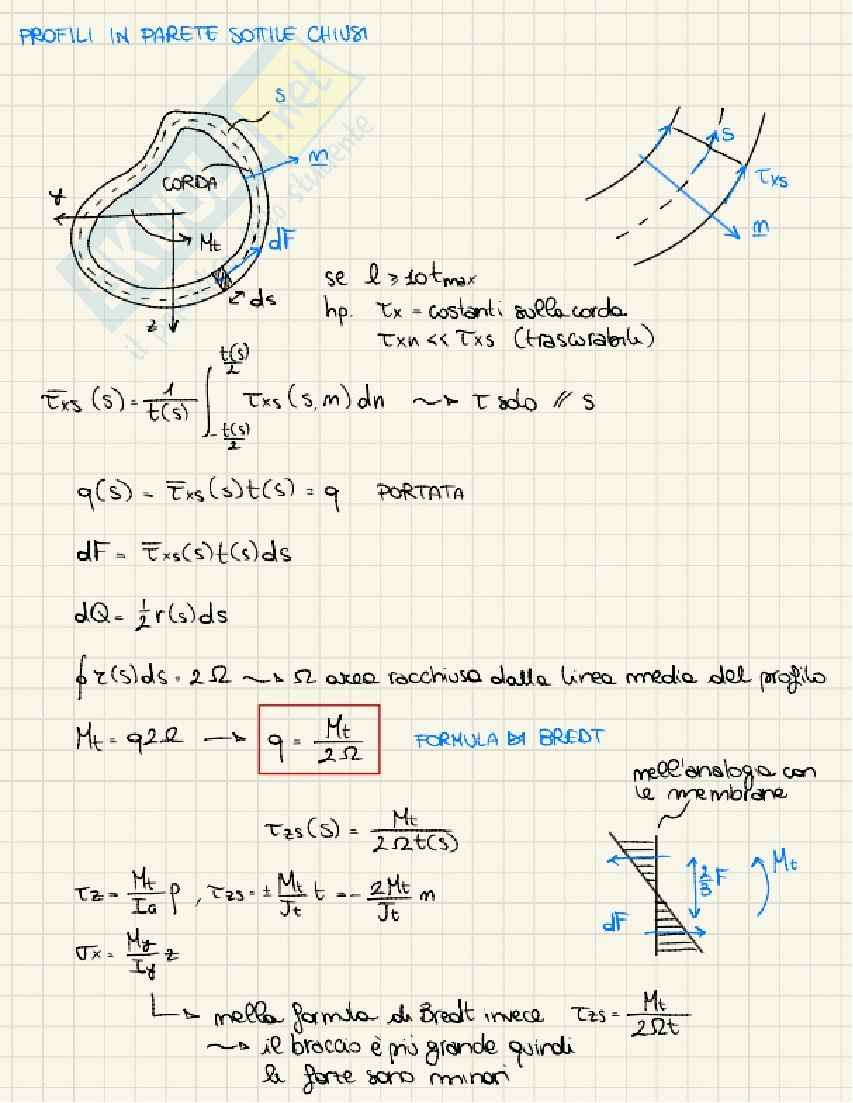 PROFILI IN PARETE SOTTILE CHIUSI
s
n
CORDA
y
Mt
dF
ds
z
s
τxs
n
se l ≥ 10 tmax
hp. τx = costanti sulla corda
τxn << τxs (trascurabile)
τ̄xs (s) = 1/t(s) ∫_{-t(s)/2}^{t(s)/2} τxs (s, n) dn ⇝ τ solo // s
q(s) = τ̄xs (s) t(s) = q PORTATA
dF = τ̄xs(s) t(s) ds
dΩ = 1/2 r(s) ds
∮ r(s) ds = 2Ω ⇝ Ω area racchiusa dalla linea media del profilo
Mt = q2Ω → q = Mt/2Ω FORMULA DI BREDT
nell'analogia con
le membrane
τzs (s) = Mt/2Ωt(s)
τz = Mt/IG ρ , τzs = ± Mt/Jt t = - 2Mt/Jt n
2/3 F
Mt
dF
σx = My/Iy z
↳ nella formula di Bredt invece τzs = Mt/2Ωt
⇝ il braccio è più grande quindi
le forze sono minori